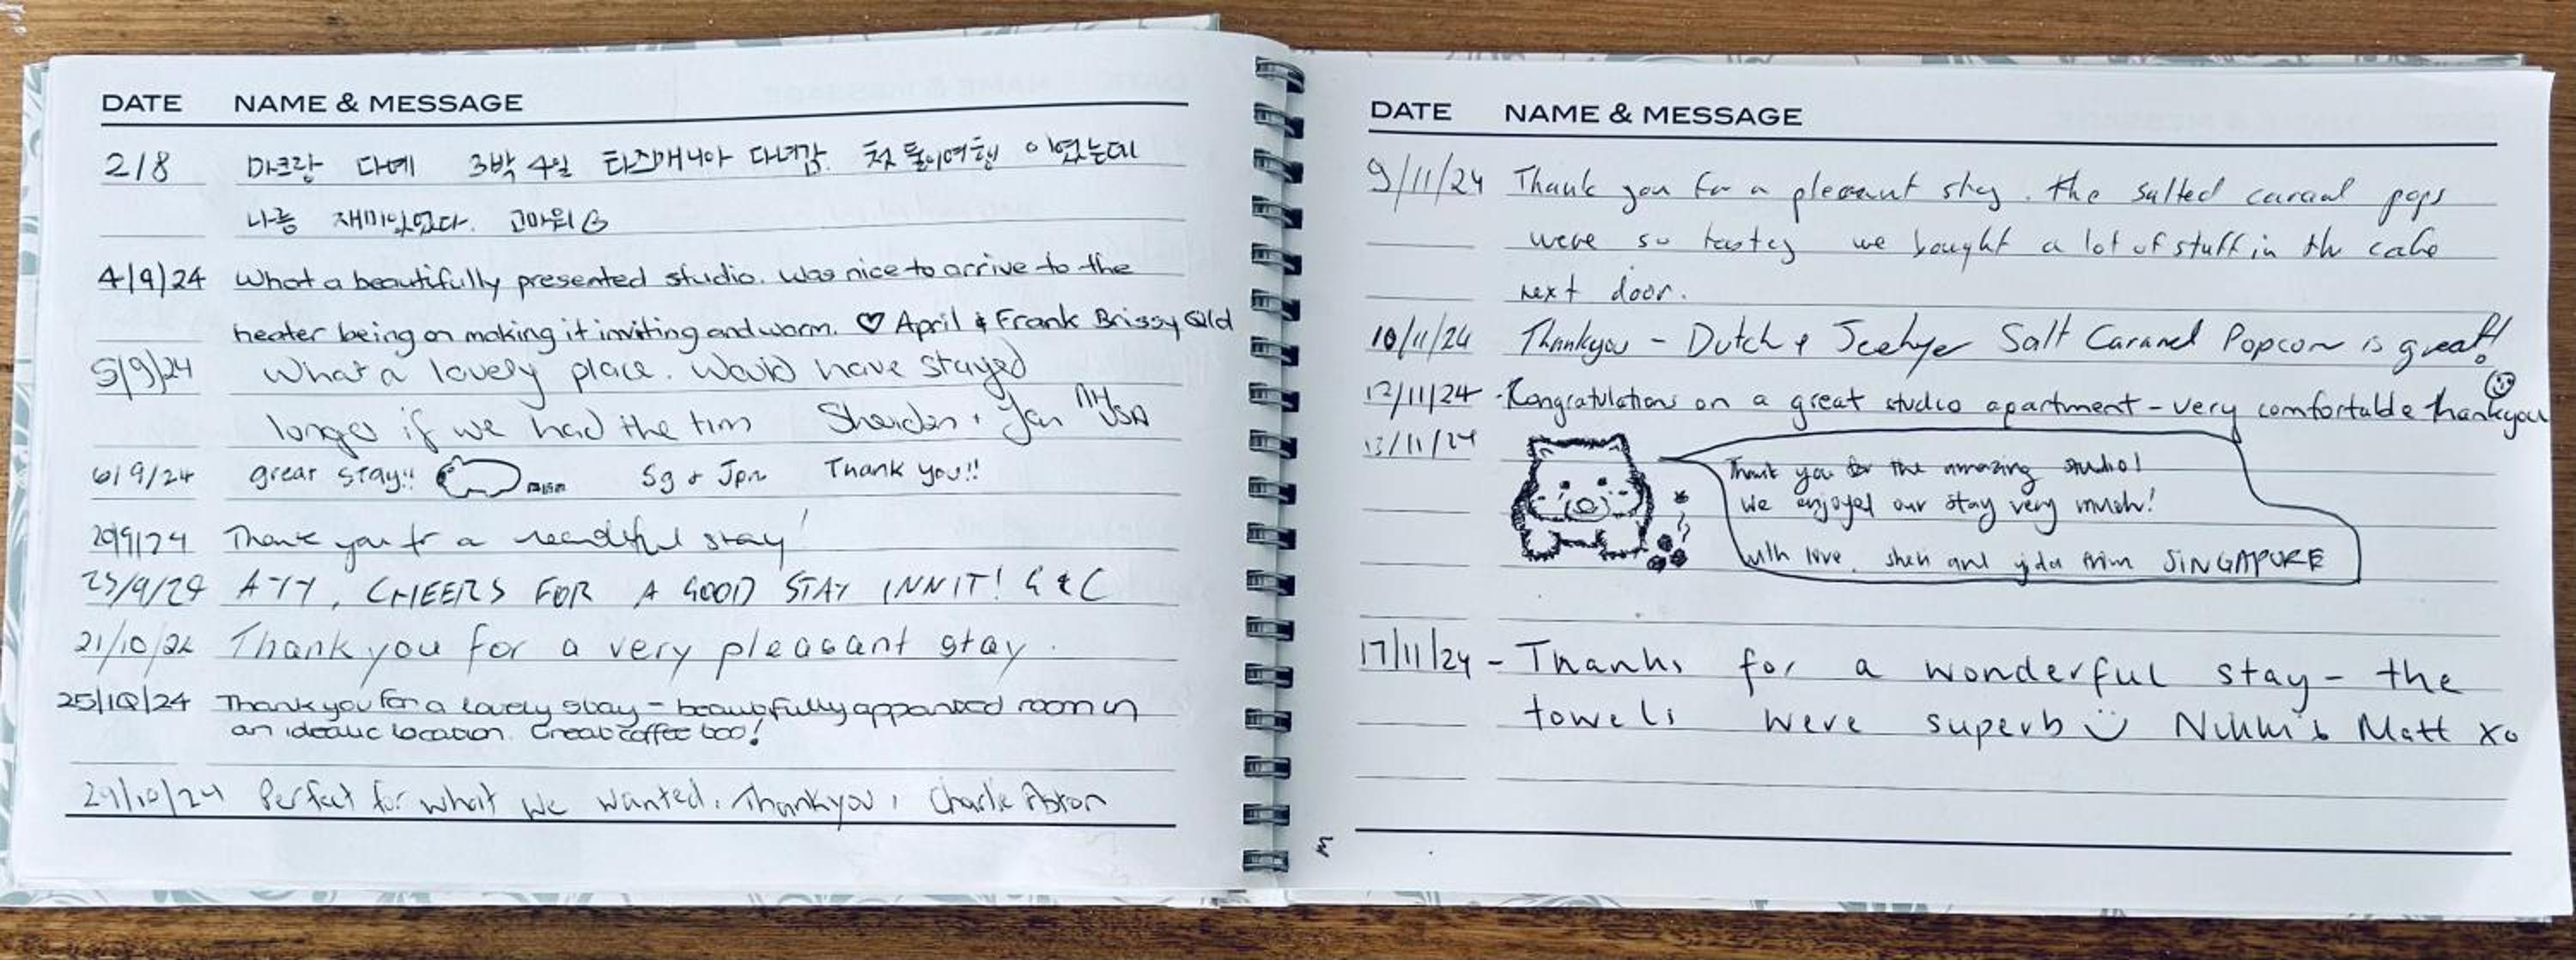 DATE NAME & MESSAGE
2/8 마크랑 다예 3박 4일 타즈매니아 다녀감. 첫 둘이여행 이였는데
나름 재미있었다. 고마워
4/9/24 What a beautifully presented studio. Was nice to arrive to the
heater being on making it inviting and warm. ♡ April & Frank Brissy Qld
5/9/24 What a lovely place. Would have stayed
longer if we had the tim + Jan NH USA
6/9/24 great stay!! Sg & Jpn Thank you!!
Thank you fr a stay!
25/9/24 CHEERS FOR A GOOD STAY INNIT! G & C
21/10/24 Thank you for a very pleasant stay.
25/10/24 Thank you for a lovely stay – beautifully appointed room in
an idealic location. Great coffee too!
29/10/24 Perfect for what we wanted. Thankyou, Charlie
DATE NAME & MESSAGE
9/11/24 Thank you for a pleasant stay. the salted caramel pops
were so tastey we bought a lot of stuff in the cafe
next door.
10/11/24 Thankyou – Dutch & Salt Caramel Popcorn is great!
12/11/24 - Kongratulations on a great studio apartment – very comfortable thankyou
13/11/24
Thank you for the amazing studio!
We enjoyed our stay very much!
with love, and from SINGAPORE
17/11/24 – Thanks for a wonderful stay – the
towels were superb Nikki & Matt xo